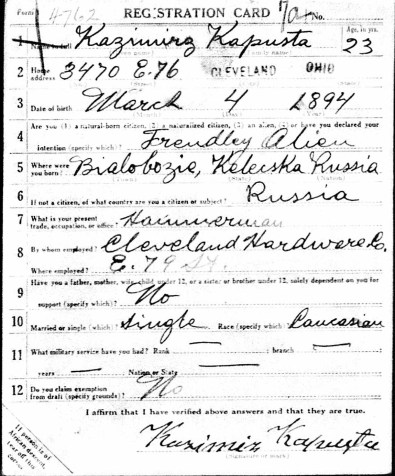 Form 4762 REGISTRATION CARD No.
1 Name in full Kazimirz Kapusta Age, in yrs. 23
2 Home address 3470 E. 76 CLEVELAND OHIO
3 Date of birth March 4 1894
Are you (1) a natural-born citizen, (2) a naturalized citizen, (3) an alien, (4) or have you declared your
4 intention (specify which)? Frendley Alien
5 Where were you born? Bialobozie, Keleiska Russia
6 If not a citizen, of what country are you a citizen or subject? Russia
7 What is your present trade, occupation, or office? Hammerman
8 By whom employed? Cleveland Hardware Co.
Where employed? E. 79 St.
Have you a father, mother, wife, child under 12, or a sister or brother under 12, solely dependent on you for
9 support (specify which)? No
10 Married or single (which)? Single Race (specify which)? Caucasian
11 What military service have you had? Rank — branch —
years — Nation or State —
12 Do you claim exemption from draft (specify grounds)? No
I affirm that I have verified above answers and that they are true.
Kazimir Kapusta
If person is of
African descent,
tear off this
corner